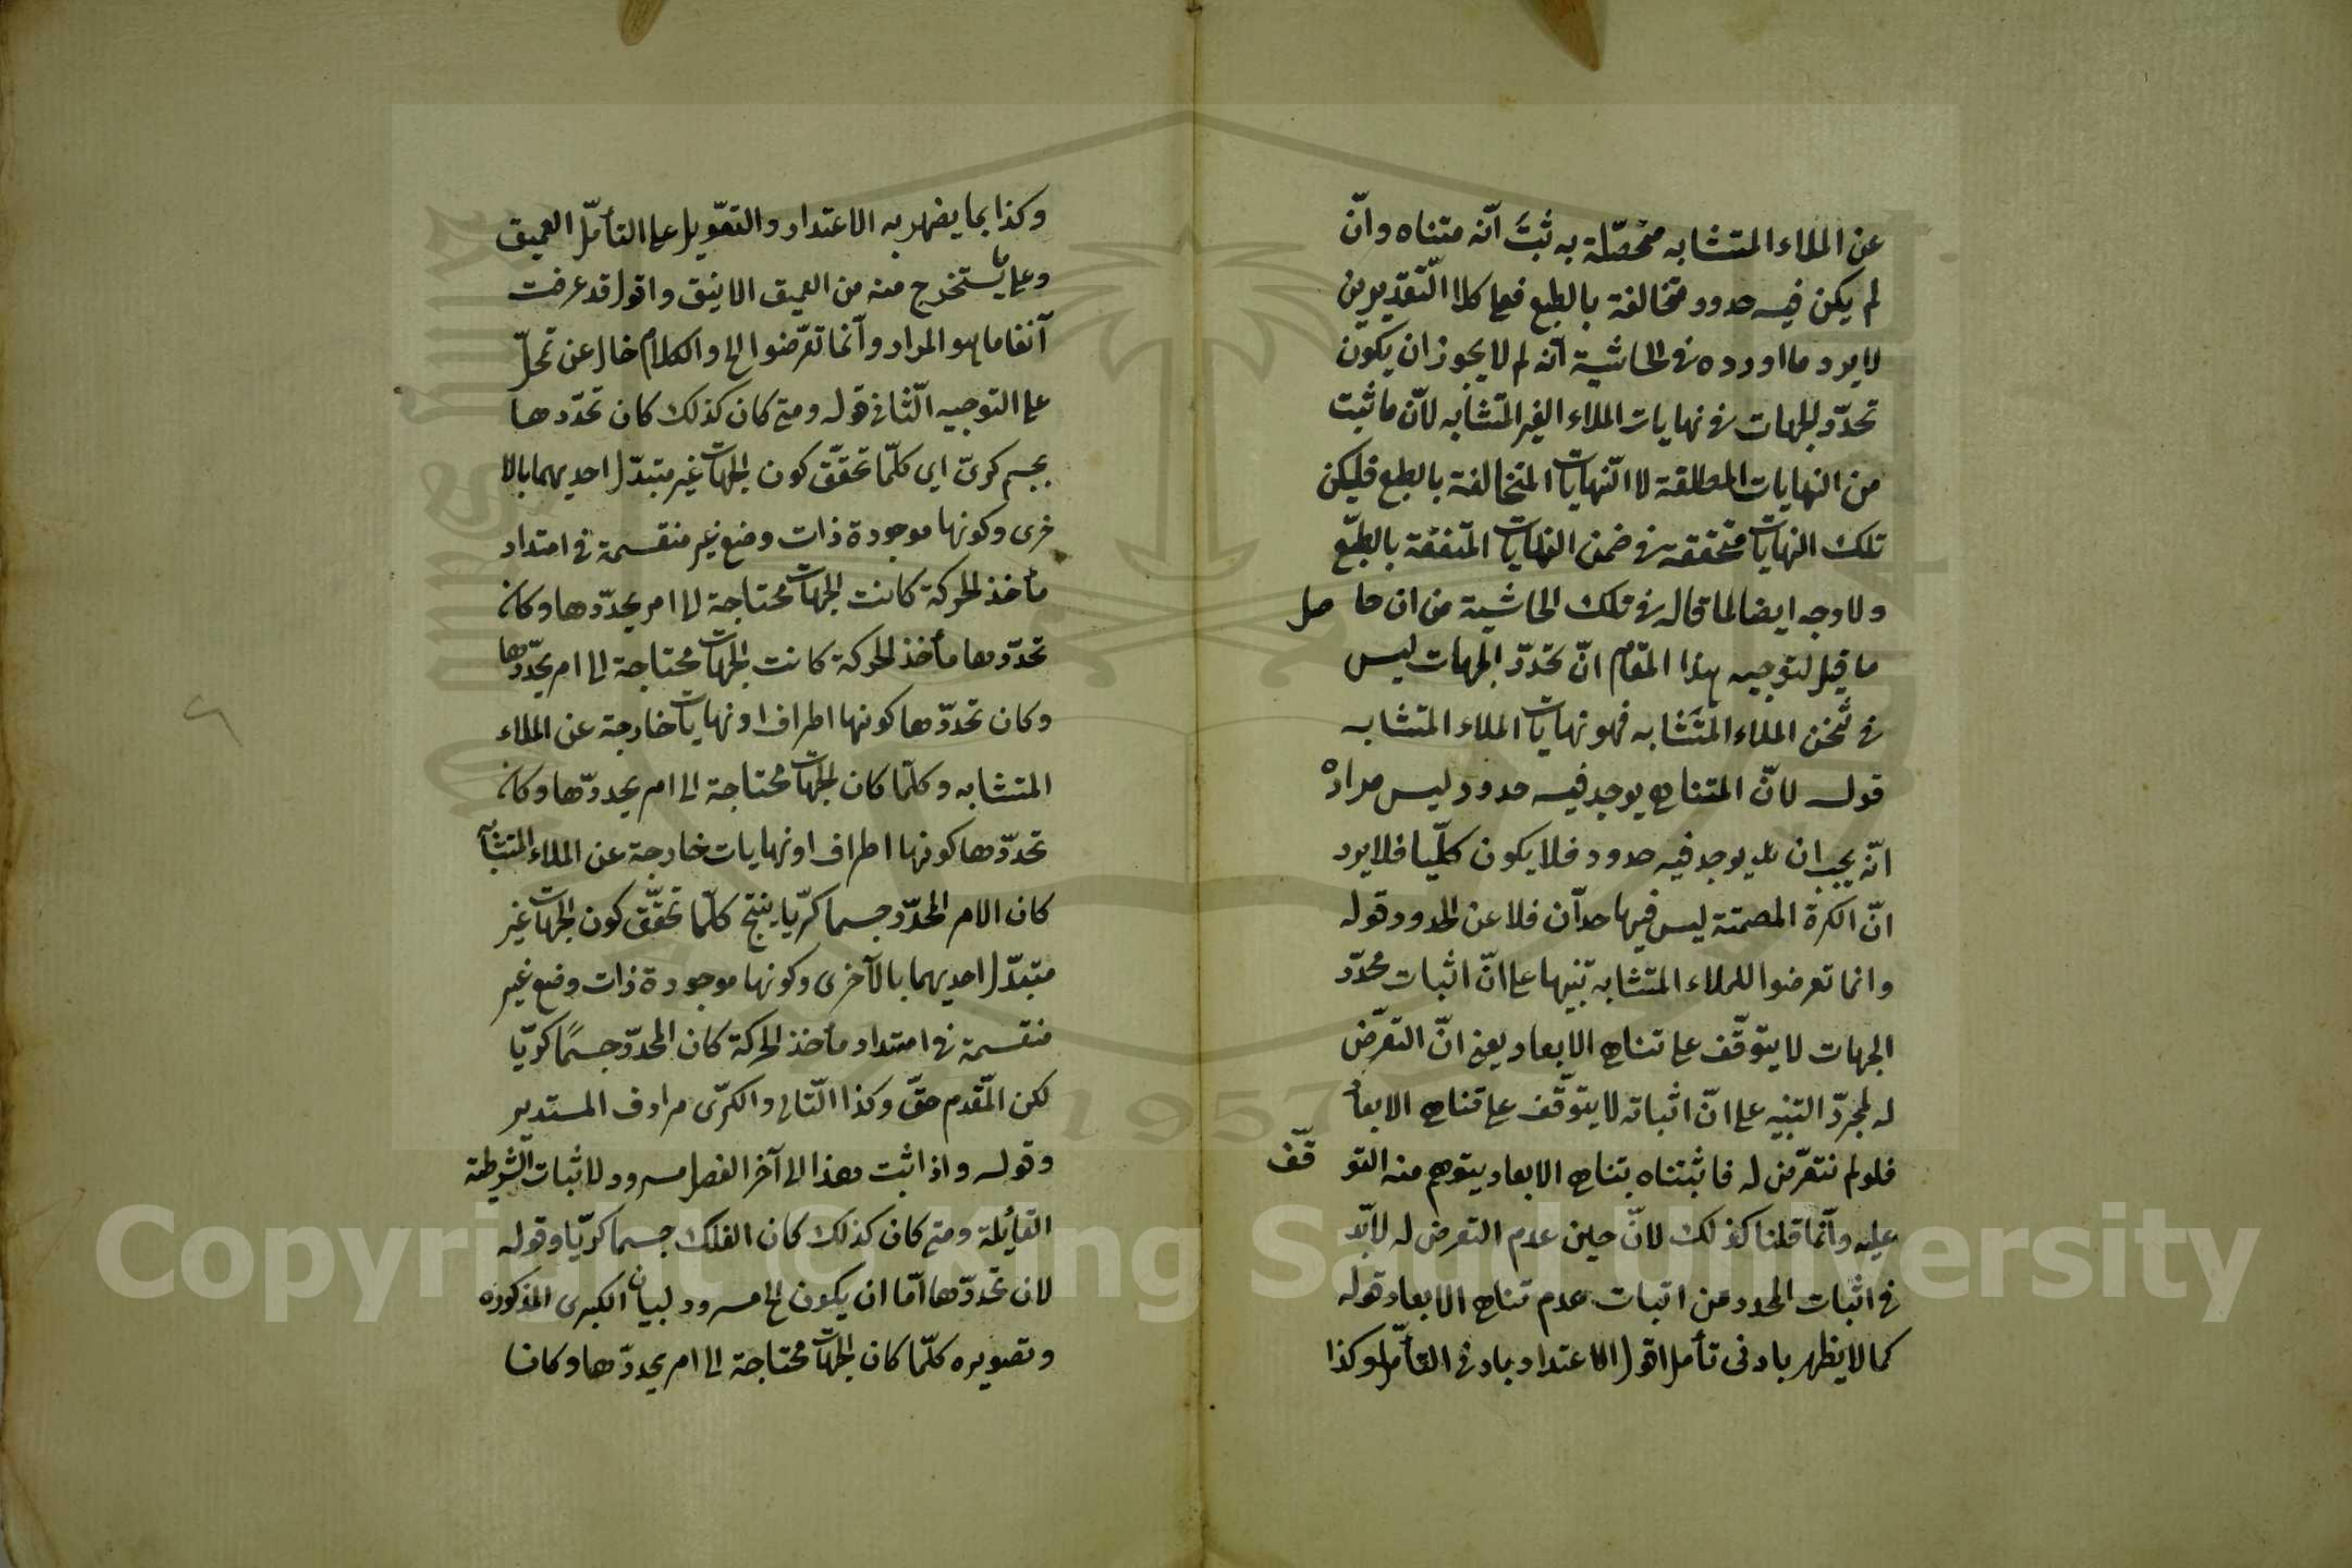 عن الملاء المتشابه محصّلة به ثبت انّه متناه وانّ
لم يكن فيه حدود متخالفة بالطبع فعلى كلا التّقديرين
لا يرد ما اورده فى الحاشية انّه لم لا يجوز ان يكون
تحدّد الجهات فى نهايات الملاء الغير المتشابه لانّ ما ثبت
من النهايات المطلقة لا النّهايات المتخالفة بالطبع فليكن
تلك النهايات متحققة فى ضمن النهايات المتفقة بالطبع
ولا وجه ايضا لما قاله فى تلك الحاشية من ان حاصل
ما قيل لتوجيه هذا المقام انّ تحدّد الجهات ليس
فى ثخن الملاء المتشابه فهو نهايات الملاء المتشابه
قوله لانّ المتناهى يوجد فيه حدود ليس مراده
انّه يجب ان يوجد فيه حدود فلا يكون كلّيا فلا يرد
انّ الكرة المصمتة ليس فيها حدّان فلا عن الحدود قوله
وانما تعرضوا للملاء المتشابه تنبيها على انّ اثبات محدّد
الجهات لا يتوقّف على تناهى الابعاد يعنى انّ التعرّض
له لمجرّد التنبيه على انّ اثباته لا يتوقّف على تناهى الابعاد
فلو لم نتعرّض له فاثبتناه بتناهى الابعاد يتوهم منه التوقّف
عليه وانّما قلنا كذلك لانّ حين عدم التعرض له لا بدّ
فى اثبات المحدد من اثبات عدم تناهى الابعاد قوله
كما لا يظهر بادنى تأمل اقول الاعتداد بادنى التأمّل وكذا
وكذا بما يضهر به الاعتداد والتعويل على التأمّل العميق
وعلى ما يستخرج منه من العميق الانيق واقول قد عرفت
آنفا ما هو المراد وانما تعرّضوا الخ والكلام خال عن تحلّ
على التوجيه الثّانى قوله ومتى كان كذلك كان تحدّدها
بجسم كرىّ اى كلّما تحقّق كون الجهات غير متبدّل احديهما بالا
خرى وكونها موجودة ذات وضع غير منقسمة فى امتداد
مأخذ الحركة كانت الجهات محتاجة الى امر يحدّدها وكان
تحدّدها مأخذ الحركة كانت الجهات محتاجة الى امر يحدّدها
وكان تحدّدها كونها اطراف او نهايات خارجة عن الملاء
المتشابه وكلّما كان الجهات محتاجة الى امر يحددّها وكان
تحدّدها كونها اطراف او نهايات خارجة عن الملاء المتشابه
كان الامر المحدّد جسما كرّيا ينتج كلّما تحقّق كون الجهات غير
متبدّل احديهما بالآخرى وكونها موجودة ذات وضع غير
منقسمة فى امتداد مأخذ الحركة كان المحدّد جسمًا كرويّا
لكن المقدّم حقّ وكذا التّالى والكرّى مرادف المستدير
وقوله واذا ثبت هذا الى آخر الفصل مسرود لاثبات الشرطية
القايلة ومتى كان كذلك كان الفلك جسما كرّيا وقوله
لان تحددّها امّا ان يكون الخ مسرود لبيان الكبرى المذكوره
وتصويره كلّما كان الجهات محتاجة الى امر يحددّها وكان